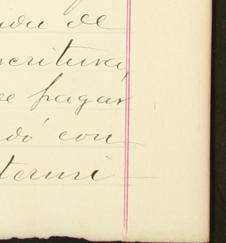 ada de
scritura,
se pagar
dó con
termi